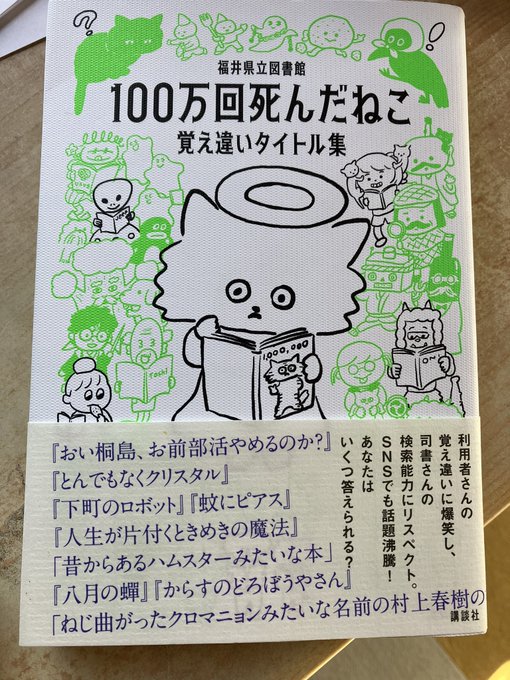 ?
!
福井県立図書館
100万回死んだねこ
覚え違いタイトル集
1,000,000
Toshi
利用者さんの
覚え違いに爆笑し、
司書さんの
検索能力にリスペクト。
SNSでも話題沸騰!
あなたは
いくつ答えられる?
『おい桐島、お前部活やめるのか?』
『とんでもなくクリスタル』
『下町のロボット』『蚊にピアス』
『人生が片付くときめきの魔法』
「昔からあるハムスターみたいな本」
『八月の蟬』『からすのどろぼうやさん』
「ねじ曲がったクロマニョンみたいな名前の村上春樹の
講談社